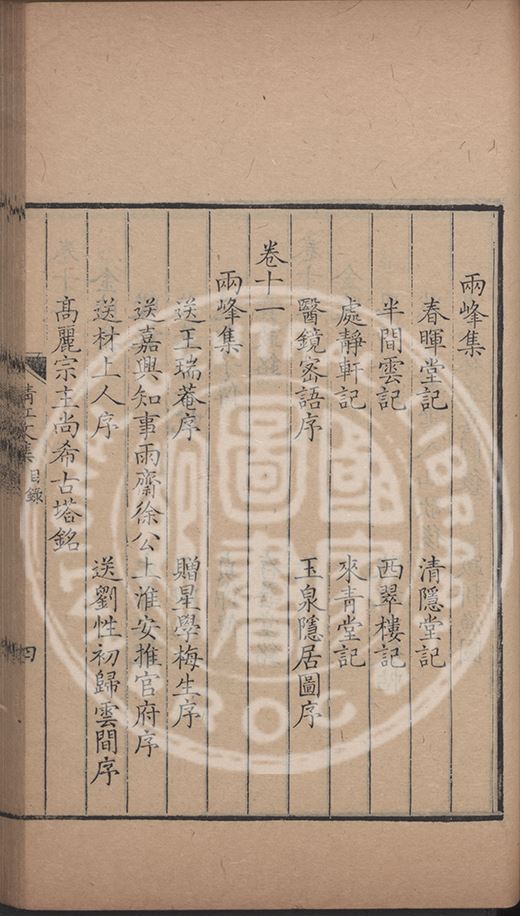 兩峰集
春暉堂記　清隱堂記
半間雲記　西翠樓記
處靜軒記　來青堂記
醫鏡密語序　玉泉隱居圖序
卷十一
兩峰集
送王瑞菴序　贈星學梅生序
送嘉興知事雨齋徐公上淮安推官府序
送材上人序　送劉性初歸雲間序
高麗宗主尚希古塔銘
清江文集　目錄　四